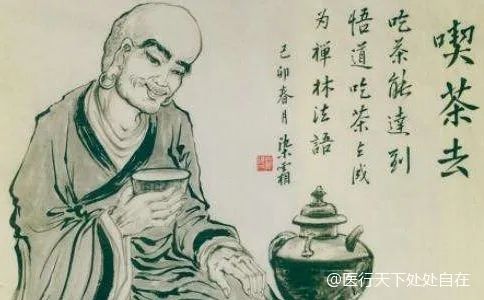 喫茶去
吃茶能達到
悟道吃茶亦成
为禅林法語
己卯春月染霜
@医行天下处处自在